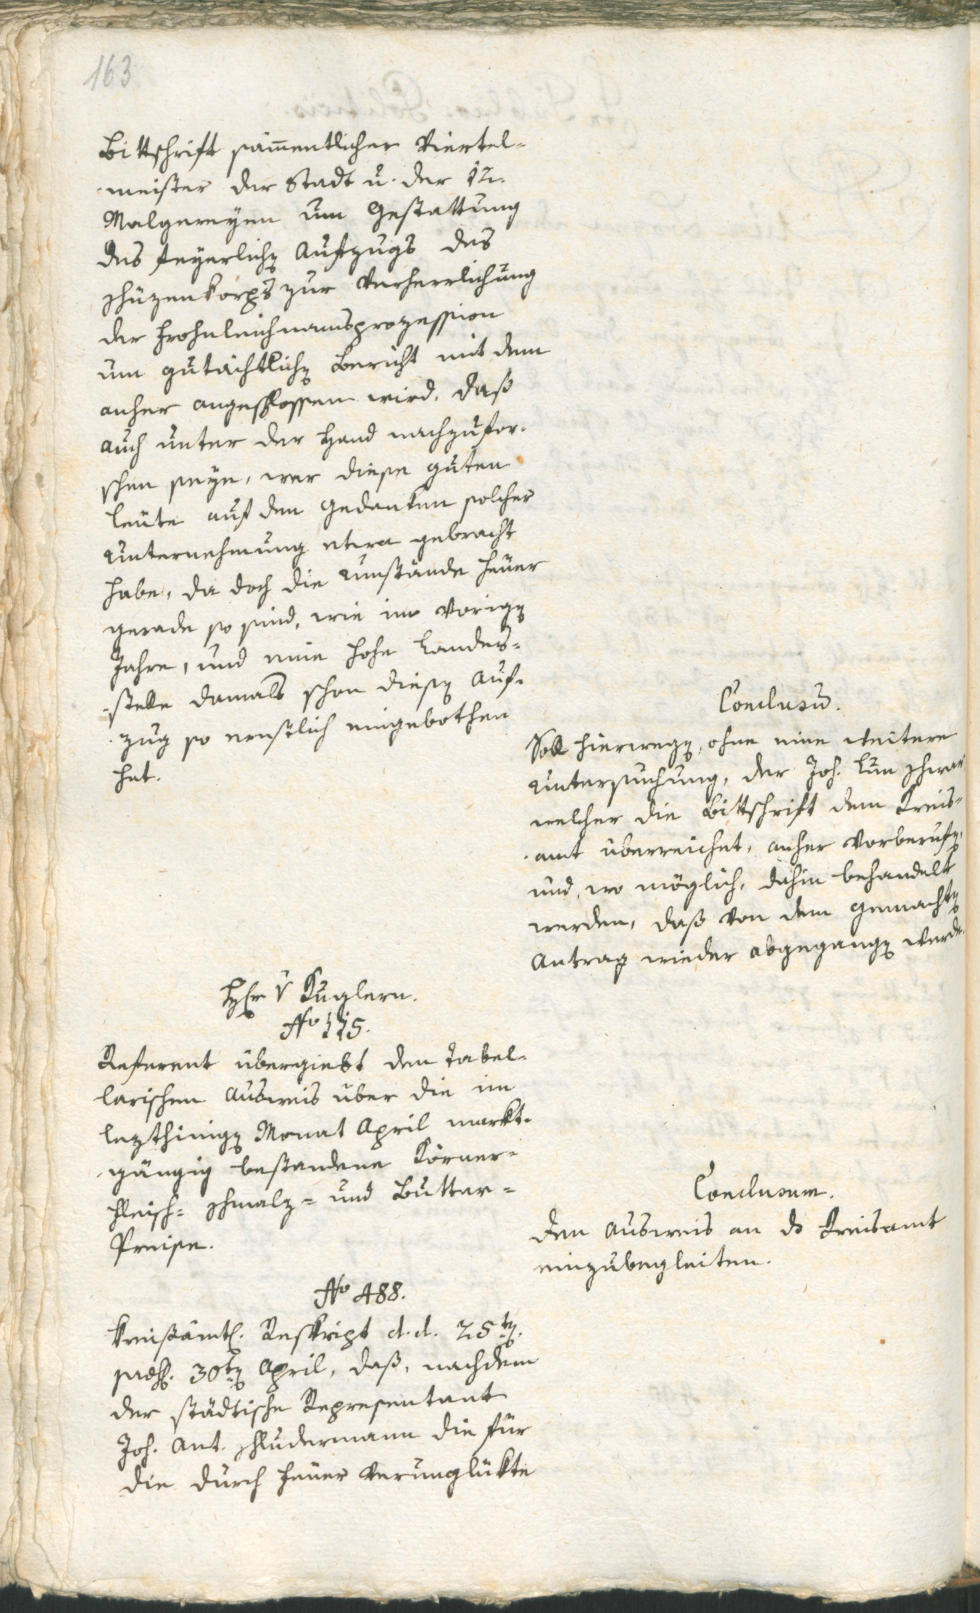 163
Bittschrift sam̄entlicher Viertel-
meister der Stadt u. der 12.
Malgereyen um Gestattung
des feyerlichen Aufzugs des
Schüzenkorps zur Verherrlichung
der Frohnleichnamsprozession
um gutächtlichen Bericht mit dem
anher angeschlossen wird, daß
auch unter der Hand nachzufor-
schen seye, wer diese guten
Leute auf den Gedanken solcher
Unternehmung etwa gebracht
habe, da doch die Umstände heuer
gerade so sind, wie im vorigen
Jahre, und eine hohe Landes-
stelle damals schon diesen Auf-
zug so ernstlich eingebothen
hat.
Conclusū.
Soll hierwegen, ohne eine weitere
Untersuchung, der Joh.
welcher die Bittschrift dem Kreis-
amt überreichet, anher vorberufen,
und, wo möglich, dahin behandelt
werden, daß von dem gemachten
Antrag wieder abgegangen werde.
Hr v Kuglern.
No 115.
Referent übergiebt den Tabel-
larischen Ausweis über die im
lezthinigen Monat April markt-
gängig bestandene Körner-
Fleisch- Schmalz- und Butter-
Preise.
Conclusum.
Den Ausweis an ds Kreisamt
einzubegleiten.
No 488.
Kreisämtl. Reskript d. d. 25ten
praes. 30ten April, daß, nachdem
der städtische Representant
Joh. Ant. Schludermann die für
die durch Feuer Verunglükte